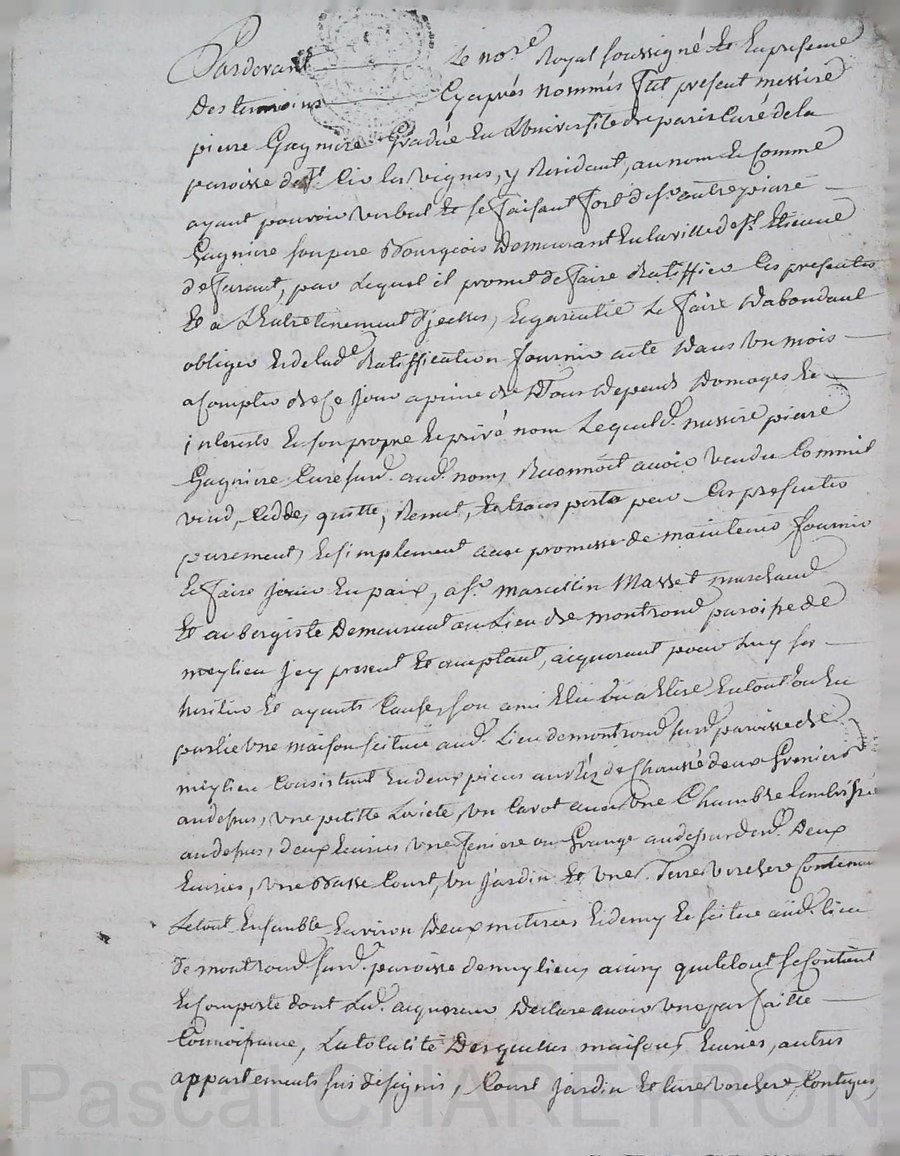 Pardevant Le no.re Royal soussigné Et En presence
Des temoins Cyaprés nommés fut present messire
pierre Gagniere Gradué En L'université de paris Curé de la
paroisse de St. Cir les vignes, y Residant, au nom Et Comme
ayant pouvoir verbal Et se faisant fort de sr. autre pierre
Gagniere son pere Bourgeois Demeurant En la ville de st. Etienne
de furant, par Lequel il promet de faire Ratiffier Ces presentes
Et a L'Entretenement d'jcelles, En garentie Le faire D'abondant
obliger Et de lad.e Ratiffication fournir acte Dans un mois
a Compter de Ce jour a peine de Tous Depends Domages Et
interets En son propre Et privé nom Lequel d. messire pierre
Gagniere Curé susd. aud. nom, Reconnoit avoir vendu Comme il
vend, Cedde, quitte, Remet, Et transporte par Ces presentes
purement, Et simplement avec promesse de maintenir fournir
Et faire jouir En paix, a sr. marcellin Masset marchand
Et aubergiste Demeurant au Lieu de montrond paroisse de
meylieu jcy present Et acceptant, acquerant pour Luy ses
heritiers Et ayants Cause, son ami Elu ou a Elire En tout ou En
partie une maison scituée aud. Lieu de montrond susd. paroisse de
meylieu Consistant En deux pieces au Réz de Chaussé deux Greniers
audesus, une petitte, un Cavot avec une Chambre lambrissée
audesus, deux Ecuries une feniere ou Grange audessus desd. Deux
Ecuries, une Basse Court, un jardin Et une Terre verchere Contenant
Le tout Ensemble Environ Deux meterées Et demy Et scitue aud. lieu
de montrond susd. paroisse de meylieu, ainsy que le tout se Contient
Et Comporte dont Led. acquereur Declare avoir une parfaitte
Connoissance, La totalité Desquelles maison, Ecuries, autres
appartements sus designés, Court jardin Et terre verchere, Contigus,
Pascal CHAREYRON